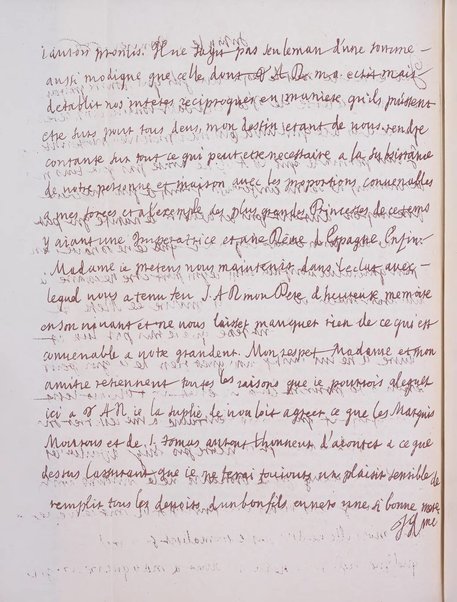 i'auois promis. Il ne s'agit pas seuleman d'une somme
aussi modique que celle dont V A R m'a ecrit mais
d'etablir nos interes reciproques en maniere qu'ils puissent
etre surs pour tous deus, mon destin etant de vous rendre
contante sur tout ce qui peut etre necessaire a la subsistance
de votre personne et maison avec les proportions convenables
a mes forces et a l'exemple des plus grande Princesses de ce tems
y aiant une Imperatrice et une Reine d'Espagne Enfin
Madame ie pretens vous maintenir dans l'eclat avec
lequel vous a tenu feu S. A R mon Pere d'heureuse memoire
en son vivant et ne vous laisser manquer rien de ce qui est
convenable a votre grandeur. Mon respet Madame et mon
amitie retiennent toutes les raisons que ie pourrois aleguer
ici a V A R ie la suplie de vouloir agreer ce que les Marquis
Mourous et de S. Tomas auront l'honneur d'aiouter a ce que
dessus l'assurant que ie me ferai touiours un plaisir sensible de
remplir tous les devoirs d'un bon fils envers une si bonne mere